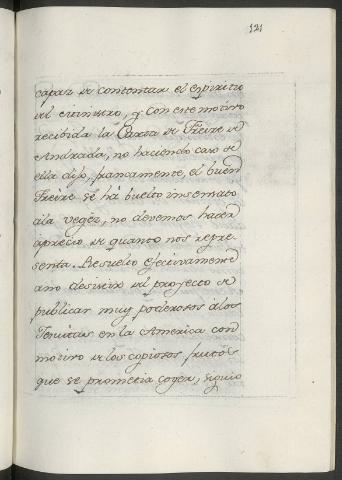 121
capaz de contentar el espiritu
del ministro, y con este motivo
recibida la Carta de Freire de
Andrada, no haciendo caso de
ella dijo, francamente, el buen
Freire se há buelto insensato
ála vegéz, no devemos hacer
aprecio de quanto nos repre-
senta. Resuelto efectivamente
ano desistir del proyecto de
publicar muy poderosos álos
Jesuitas en la America con
motivo de los copiosos frutos
que se prometia coger, siguio